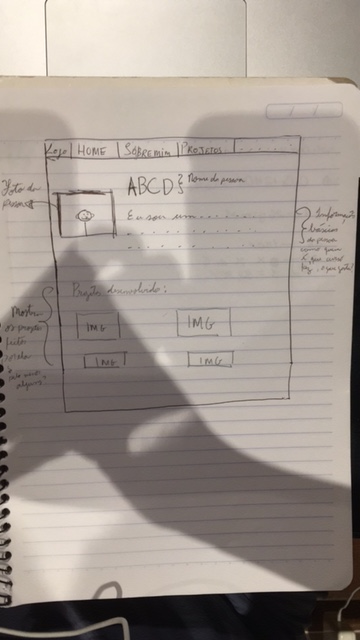 Logo HOME SOBRE MIM PROJETOS
Foto da pessoa
ABCD } Nome da pessoa
Eu sou um
Informações
básicas
da pessoa
como quem
é, que
faz, o que gosta?
Projetos desenvolvidos:
Mostrar
os projetos
feito
IMG IMG
IMG IMG